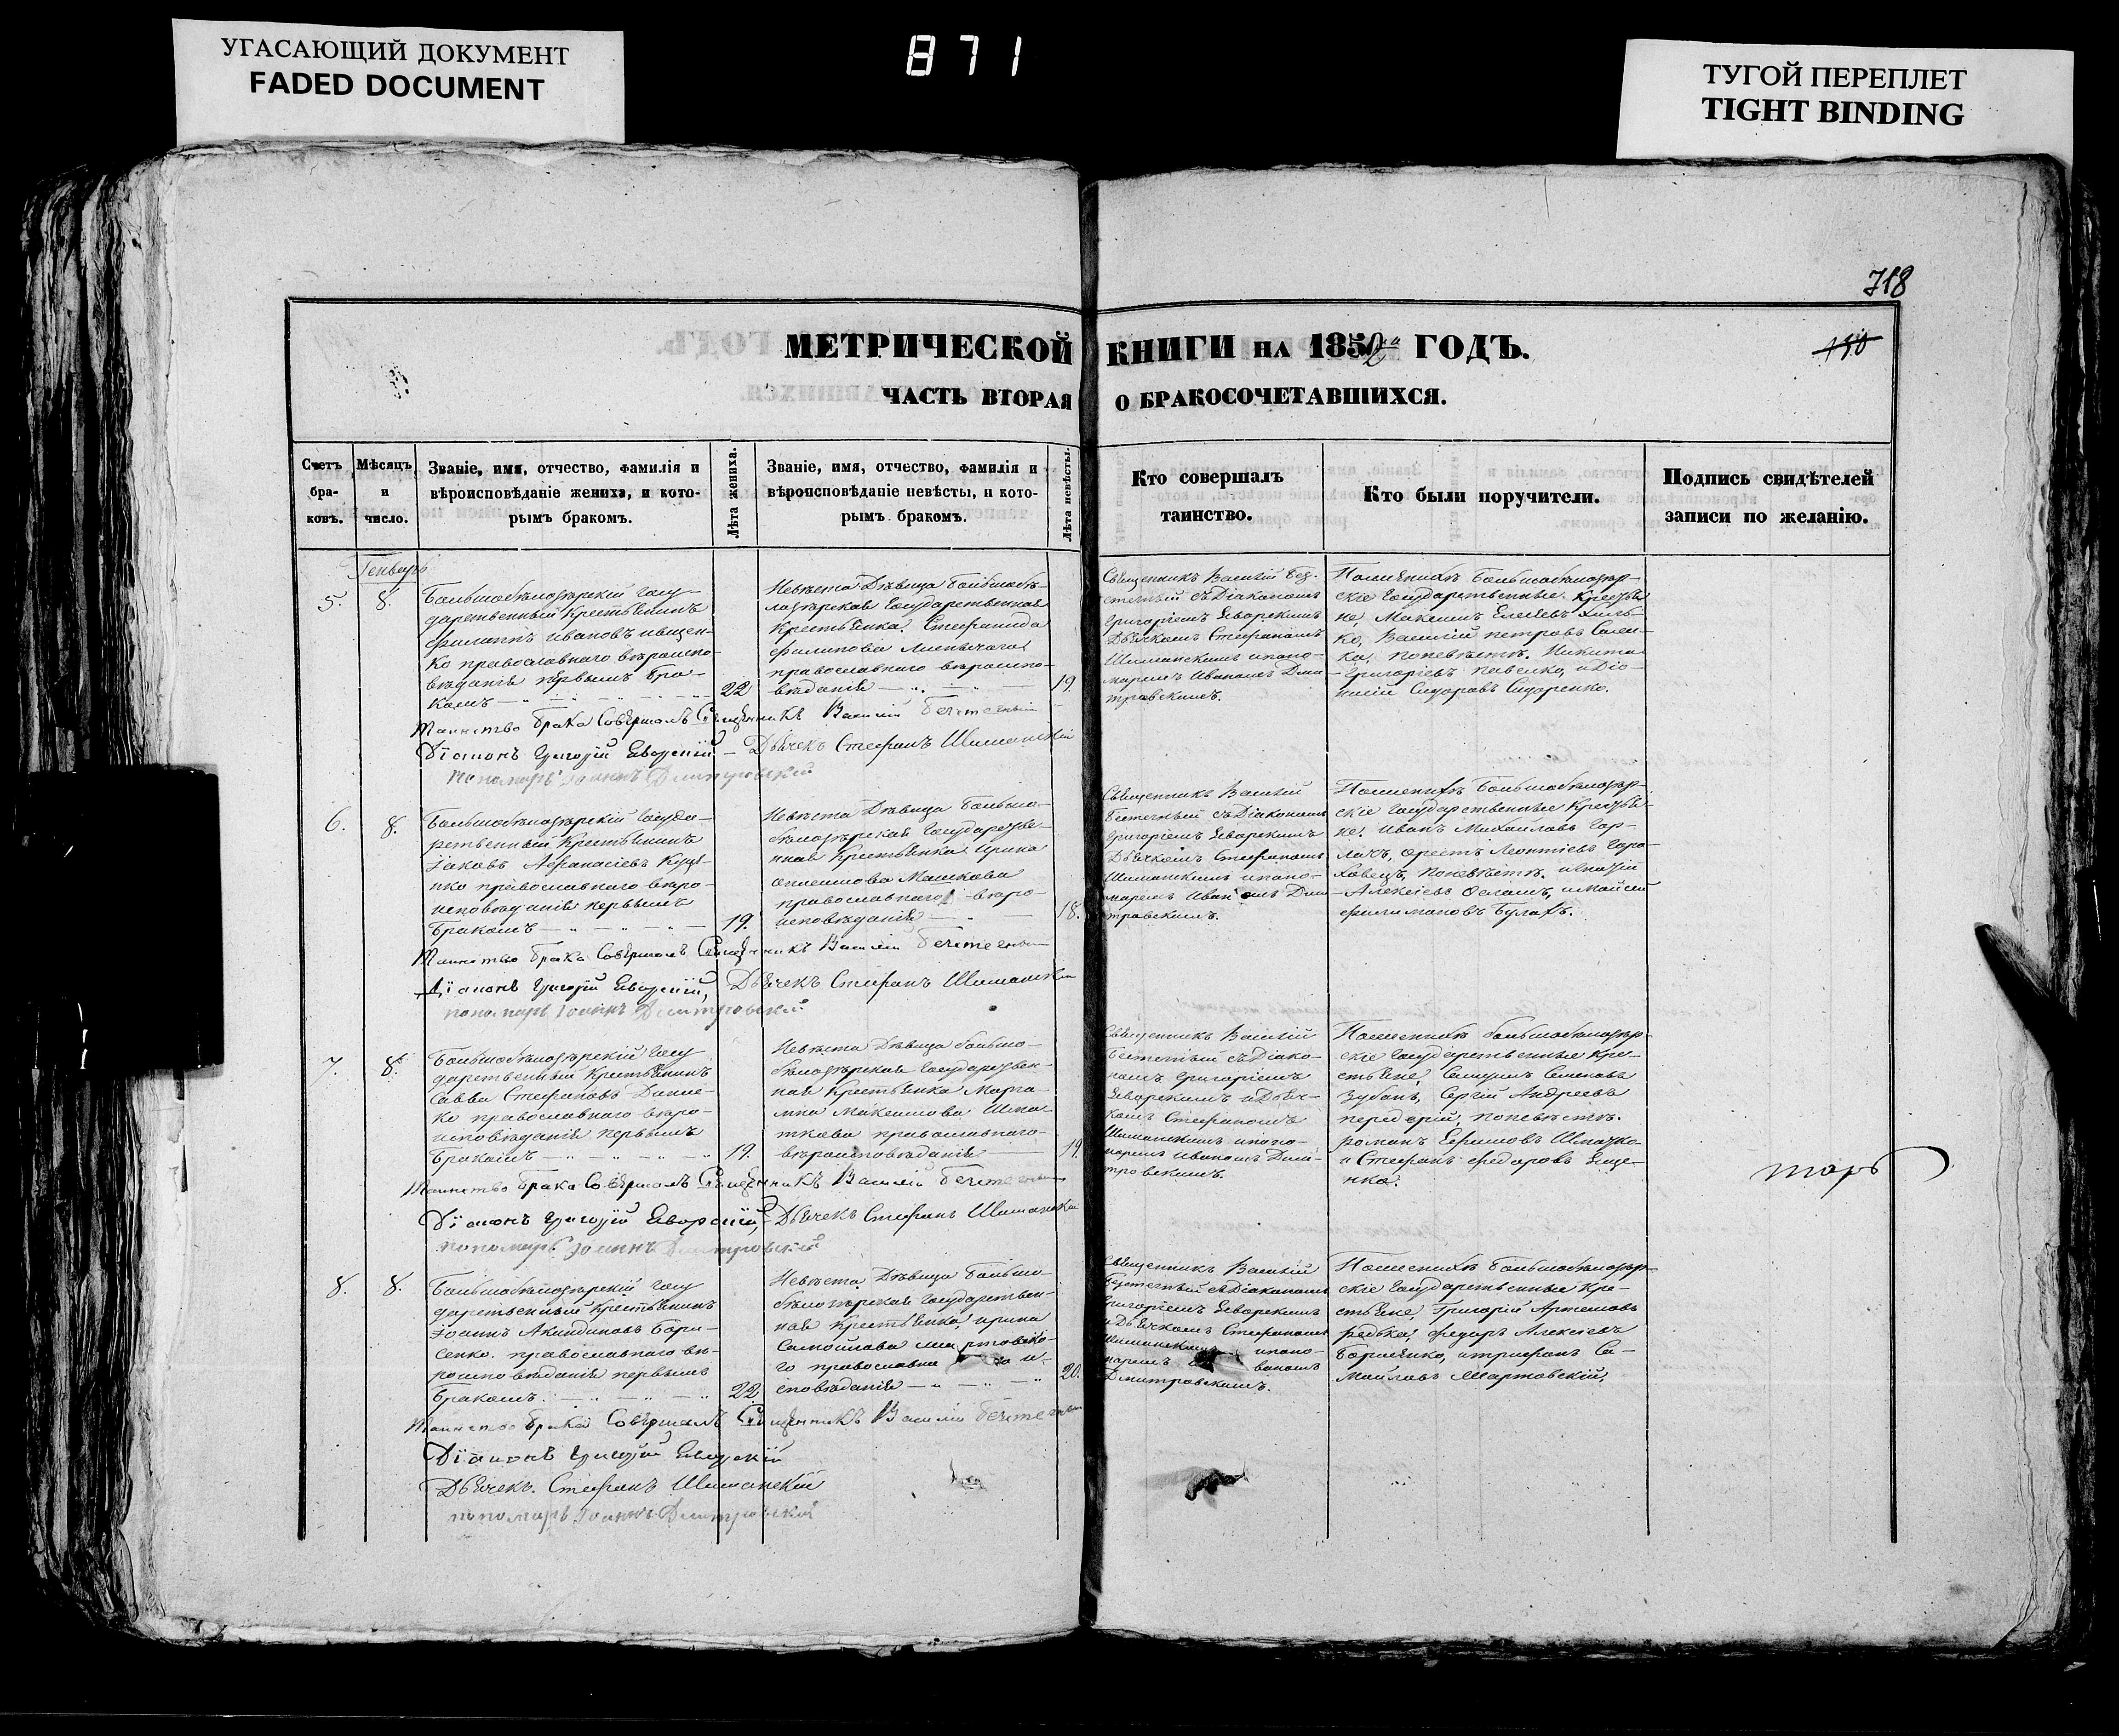 УГАСАЮЩИЙ ДОКУМЕНТ
FADED DOCUMENT
871
ТУГОЙ ПЕРЕПЛЕТ
TIGHT BINDING
718
МЕТРИЧЕСКОЙ КНИГИ НА 185 ГОДЪ.
150
ЧАСТЬ ВТОРАЯ О БРАКОСОЧЕТАВШИХСЯ.
Счетъ бра-ковъ.
Мѣсяцъ и число.
Званіе, имя, отчество, фамилія и
вѣроисповѣданіе жениха, и кото-
рымъ бракомъ.
Лѣта жениха.
Званіе, имя, отчество, фамилія и
вѣроисповѣданіе невѣсты, и кото-
рымъ бракомъ.
Лѣта невѣсты.
Кто совершалъ
таинство.
Кто были поручители.
Подпись свидѣтелей
записи по желанію.
Генварь
5.
8.
Большобѣлозѣрскій госу-
дарственный Крестьянинъ
филиппъ Ивановъ
ко православнаго вѣроиспо-
вѣданія первымъ бра-
комъ
22
Невѣста Дѣвица Большобѣ-
лозѣрская Государственная
Крестьянка Стефанида
филипова
православнаго вѣроиспо-
вѣданія
19.
Священникъ Василій
съ Діакономъ
Григоріемъ Яворскимъ
Дьячкомъ Стефаномъ
Шиманскимъ и поно-
маремъ Иваномъ Дми-
тровскимъ.
По женихѣ Большобѣлозѣр-
скіе Государственные Крестья
не, Максимъ Елисѣевъ
ко, Василій Петровъ
по невѣстѣ. Никита
Григоріевъ Павелко, и Діо-
нисій Сидоровъ Сидоренко.
Таинство брака Совершалъ Священникъ Василій
Діаконъ Григорій Яворскій – Дьячекъ Стефанъ Шиманскій
пономарь Іоаннъ Димитровскій
6.
8.
Большобѣлозѣрскій Госуда-
рственный Крестьянинъ
Іаковъ Афанасіевъ
нко православнаго вѣро-
исповѣданія первымъ
бракомъ
19.
Невѣста Дѣвица Большо-
бѣлозѣрская Государстве-
нная Крестьянка Ирина
Машкова
православнаго вѣро
исповѣданія
18.
Священникъ Василій
съ Діакономъ
Григоріемъ Яворскимъ
Дьячкомъ Стефаномъ
Шиманскимъ и поно-
маремъ Иваномъ Дми
тровскимъ.
По женихѣ Большобѣлозѣр-
скіе Государственные Крестья-
не, Иванъ Михайловъ Гор-
лачъ, Орестъ Леонтіевъ Горо-
ховецъ, по невѣстѣ. Игнатій
Алексіевъ и Моисей
филимоновъ Булахъ.
Таинство брака Совершалъ Священникъ Василій
Діаконъ Григорій Яворскій, Дьячекъ Стефанъ Шиманскій
пономарь Іоаннъ Димитровскій
7.
8.
Большобѣлозѣрскій Госу
дарственный Крестьянинъ
Савва Стефановъ
ко православнаго вѣро-
исповѣданія первымъ
бракомъ
19.
Невѣста Дѣвица Большо-
бѣлозѣрская Государствен-
ная Крестьянка Марiа-
мна Максимова Шма-
ткова православнаго
вѣроисповѣданія
19.
Священникъ Василій
съ Діако-
номъ Григоріемъ
Яворскимъ и Дьяч-
комъ Стефаномъ
Шиманскимъ и поно-
маремъ Иваномъ Дми-
тровскимъ.
По женихѣ Большобѣлозѣр-
скіе Государственные Кре-
стьяне, Семеновъ
Зубанъ, Сергій Андреевъ
передерій, по невѣстѣ.
романъ Ефимовъ Шматко
и Стефанъ федоровъ Яще-
нко.
марь
Таинство брака Совершалъ Священникъ Василій
Діаконъ Григорій Яворскій, Дьячекъ Стефанъ Шиманскій
пономарь Іоаннъ Димитровскій
8.
8.
Большобѣлозѣрскій Госу
дарственный Крестьянинъ
Іоаннъ Акиндиновъ Бори-
сенко православнаго вѣ-
роисповѣданія первымъ
бракомъ.
22
Невѣста Дѣвица Большо-
бѣлозѣрская Государствен-
ная Крестьянка, Ирина
Самойлова мартовско-
го православна и-
сповѣданія
20.
Священникъ Василій
съ Діакономъ
Григоріемъ Яворскимъ
и Дьячкомъ Стефаномъ
Шиманскимъ и поно-
маремъ Иваномъ
Дмитровскимъ.
По женихѣ Большобѣлозѣр-
скіе Государственные Кре-
стьяне, Григорій Артемовъ
редька, федоръ Алексіевъ
Борисенко, и трифонъ Са-
мойловъ Мартовскій.
Таинство брака Совершалъ Священникъ Василій
Діаконъ Григорій Яворскій
Дьячекъ. Стефанъ Шиманскій
пономарь Іоаннъ Димитровскій